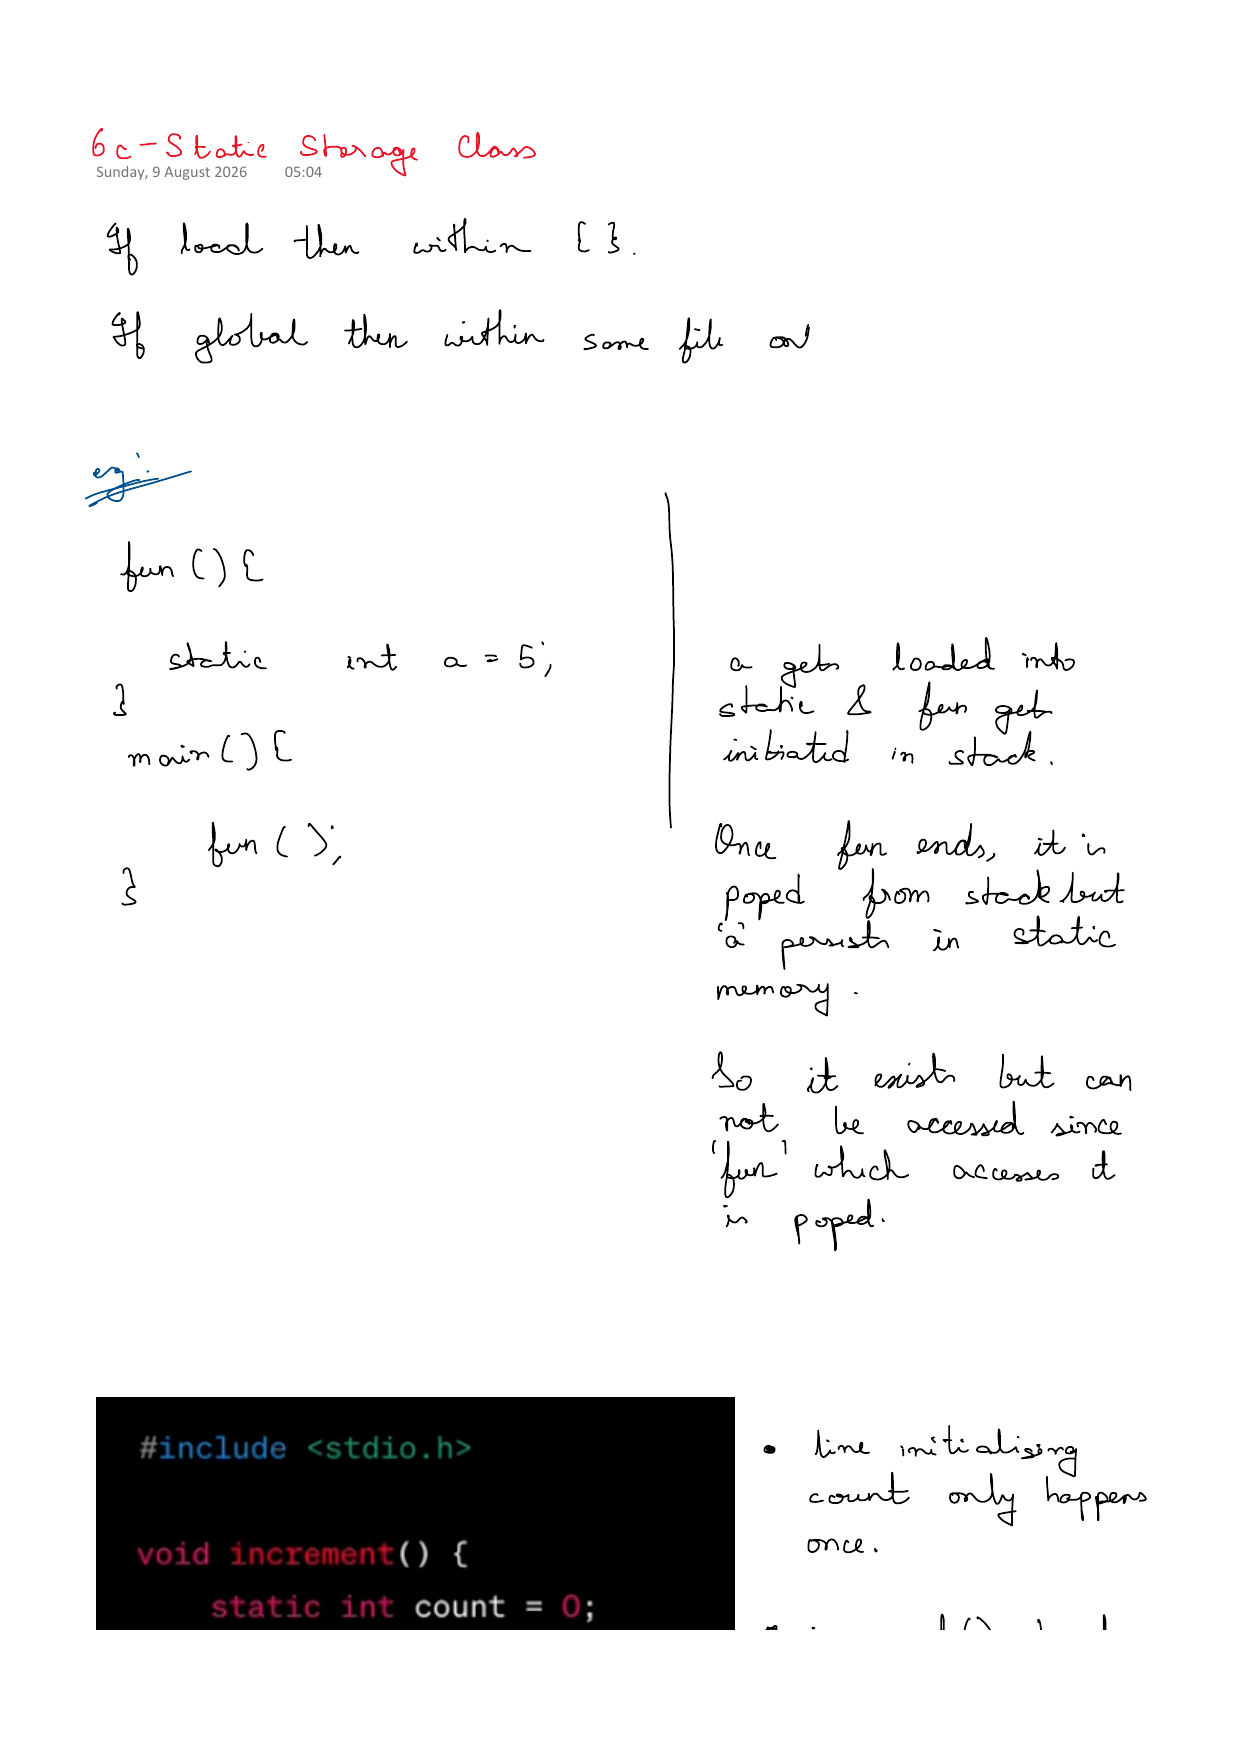 6c-Static Storage Class
Sunday, 9 August 2026 05:04
If local then within { }.
If global then within same file
eg:
fun () {
static int a = 5;
}
main () {
fun ( );
}
a gets loaded into
static & fun gets
initiated in stack.
Once fun ends, it is
poped from stack but
'a' persists in static
memory.
So it exists but can
not be accessed since
'fun' which accesses it
is poped.
#include <stdio.h>
void increment() {
static int count = 0;
• line initialising
count only happens
once.